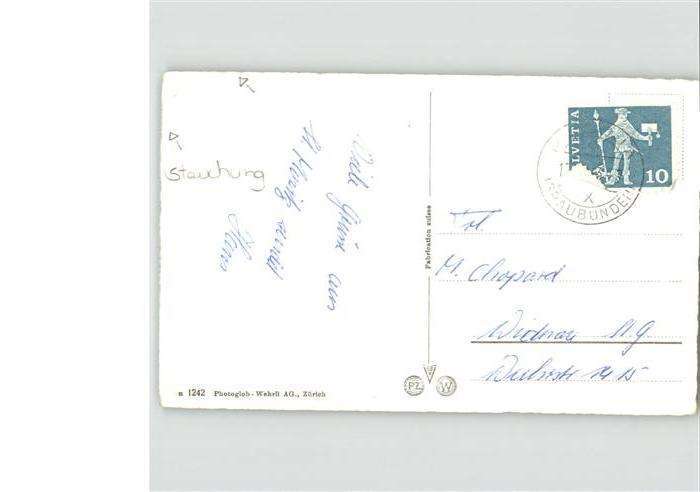 Stauchung
Viele Grüsse aus
St. Moritz sendet
Fabrication suisse
HELVETIA
10
GRAUBÜNDEN
Frl
M. Chopard
Widnau
PZ
W
n 1242 Photoglob-Wehrli AG., Zürich